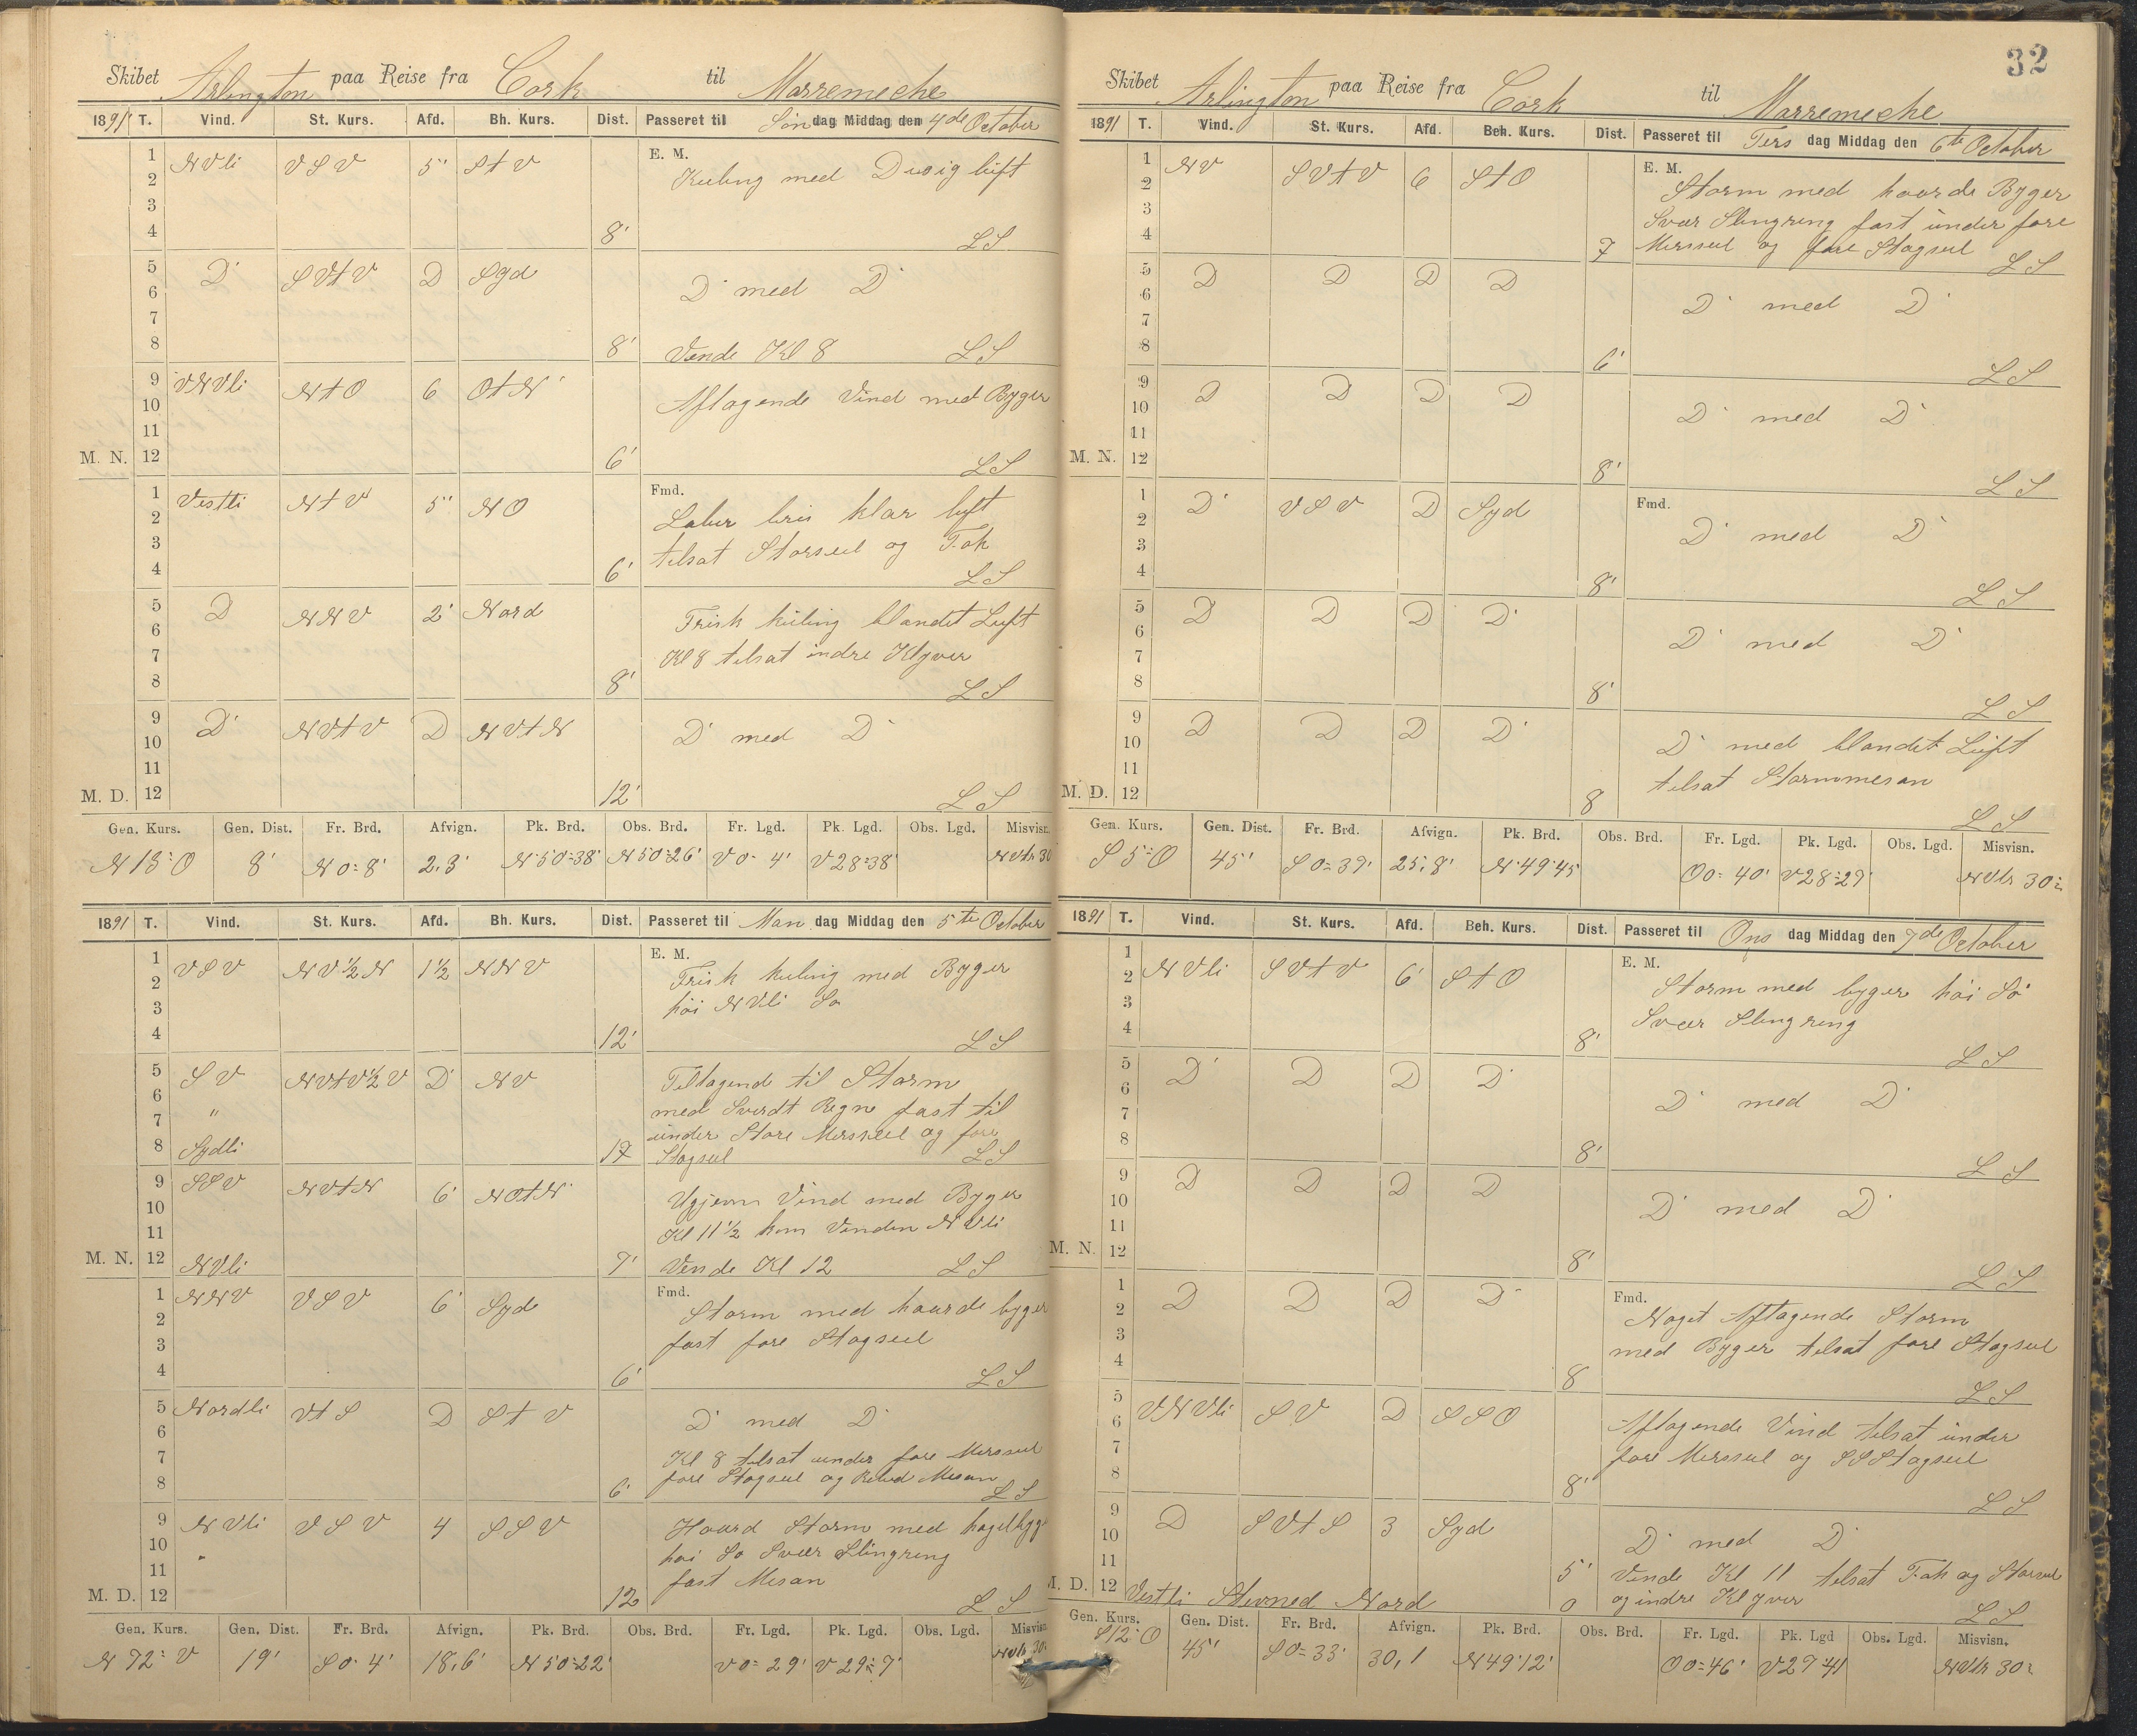 Skibet Arlington paa Reise fra Cork til Marremeche
1891 T. Vind. St. Kurs. Afd. Bh. Kurs. Dist. Passeret til Søndag Middag den 4de October
1 NVli VSV 5" StV E. M.
2 Kuling med Disig luft
3
4 8' LS
5 D SVtV D Syd
6 D med D
7
8 8' Vende Kl 8 LS
9 VNVli NtO 6 OtN
10 Aftagende Vind med Byger
11
M. N. 12 6' LS
1 Vestli NtV 5" NO Fmd.
2 Laber bris klar luft
3 tilsat Storseil og Fok
4 6' LS
5 D NNV 2' Nord
6 Frisk kuling blandet Luft
7 Kl 8 tilsat indre Klyver
8 8' LS
9 D NVtV D NVtN
10 D med D
11
M. D. 12 12' LS
Gen. Kurs. Gen. Dist. Fr. Brd. Afvign. Pk. Brd. Obs. Brd. Fr. Lgd. Pk. Lgd. Obs. Lgd. Misvisn.
N 18° O 8' N 0=8' 2,3' N 50=38' N 50=26' V 0= 4' V 28=38' NVtr 30
1891 T. Vind. St. Kurs. Afd. Bh. Kurs. Dist. Passeret til Mandag Middag den 5te October
1 VSV NV½N 1½ NNV E. M.
2 Frisk kuling med Byger
3 høi NVli Sø
4 12' LS
5 SV NVtV½V D NV Tiltagende til Storm
6 med Sverdt Regn fast til
7 " under Store Mersseil og fore
8 Sydli 12 Stagseil LS
9 SSV NVtN 6' NOtN
10 Ugjevn Vind med Byger
11 Kl 11½ kom Vinden NVli
M. N. 12 NVli 7' Vende Kl 12 LS
1 NNV VSV 6' Syd Fmd.
2 Storm med haarde byger
3 fast fore Stagseil
4 6' LS
5 Nordli VtS D StV
6 D med D
7 Kl 8 tilsat under fore Mersseil
8 6' fore Stagseil og Mesan LS
9 NVli VSV 4 SSV
10 " Haard Storm med hagelbyg
11 høi Sø Svær Slingring
fast Mesan
M. D. 12 12 LS
Gen. Kurs. Gen. Dist. Fr. Brd. Afvign. Pk. Brd. Obs. Brd. Fr. Lgd. Pk. Lgd. Obs. Lgd. Misvisn.
N 72° V 19' S 0= 4' 18,6' N 50=22' V 0= 29' V 29= 7' NVtr 30
32
Skibet Arlington paa Reise fra Cork til Marremeche
1891 T. Vind. St. Kurs. Afd. Beh. Kurs. Dist. Passeret til Tersdag Middag den 6te October
1 NV SVtV 6 StO E. M.
2 Storm med haarde Byger
3 Svær Slingring fast under fore
4 7 Mersseil og fore Stagseil LS
5 D D D D
6 D med D
7
8 6' LS
9 D D D D
10 D med D
11
M. N. 12 8' LS
1 D VSV D Syd Fmd.
2 D med D
3
4 8' LS
5 D D D D
6 D med D
7
8 8' LS
9 D D D D
10 D med blandet Luft
11 tilsat Stormmesan
M. D. 12 8 LS
Gen. Kurs. Gen. Dist. Fr. Brd. Afvign. Pk. Brd. Obs. Brd. Fr. Lgd. Pk. Lgd. Obs. Lgd. Misvisn.
S 5° O 45' S 0=39' 25,8' N 49°45' O 0= 40' V 28=29' NVtr 30
1891 T. Vind. St. Kurs. Afd. Beh. Kurs. Dist. Passeret til Onsdag Middag den 7de October
1 E. M.
2 NVli SVtV 6' StO Storm med byger høi Sø
3 Svær Slingring
4 8' LS
5 D D D D
6 D med D
7
8 8' LS
9 D D D D
10 D med D
11
M. N. 12 8' LS
1 D D D D Fmd.
2 Noget Aftagende Storm
3 med Byger tilsat fore Stagseil
4 8 LS
5 VNVli SV D SSO
6 Aftagende Vind tilsat under
7 fore Mersseil og SSStagseil
8 8' LS
9 D SVtS 3 Syd
10 D med D
11 5' Vende Kl 11 tilsat Fok og Storseil
M. D. 12 Vestli Stevned Nord 0 og indre Klyver LS
Gen. Kurs. Gen. Dist. Fr. Brd. Afvign. Pk. Brd. Obs. Brd. Fr. Lgd. Pk. Lgd Obs. Lgd. Misvisn.
S 12° O 45' S 0=33' 30,1 N 49°12' O 0=46' V 27°41 NVtr 30